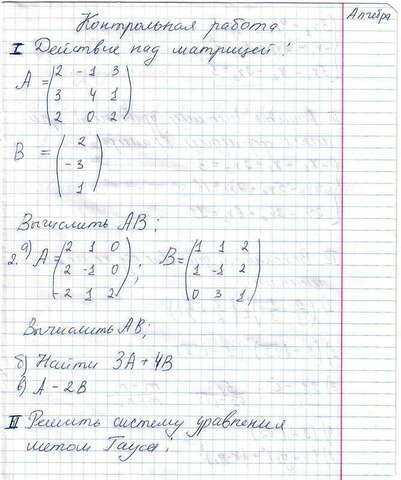 Алгебра
Контрольная работа
I Действие над матрицей!
A = (2 -1 3
3 4 1
2 0 2)
B = (2
-3
1)
Вычислить AB;
2. а) A = (2 1 0
2 -1 0
-2 1 2) ; B = (1 1 2
1 -1 2
0 3 1)
Вычислить AB;
б) Найти 3A + 4B
в) A - 2B
II Решить систему уравнения
метом Гауса.